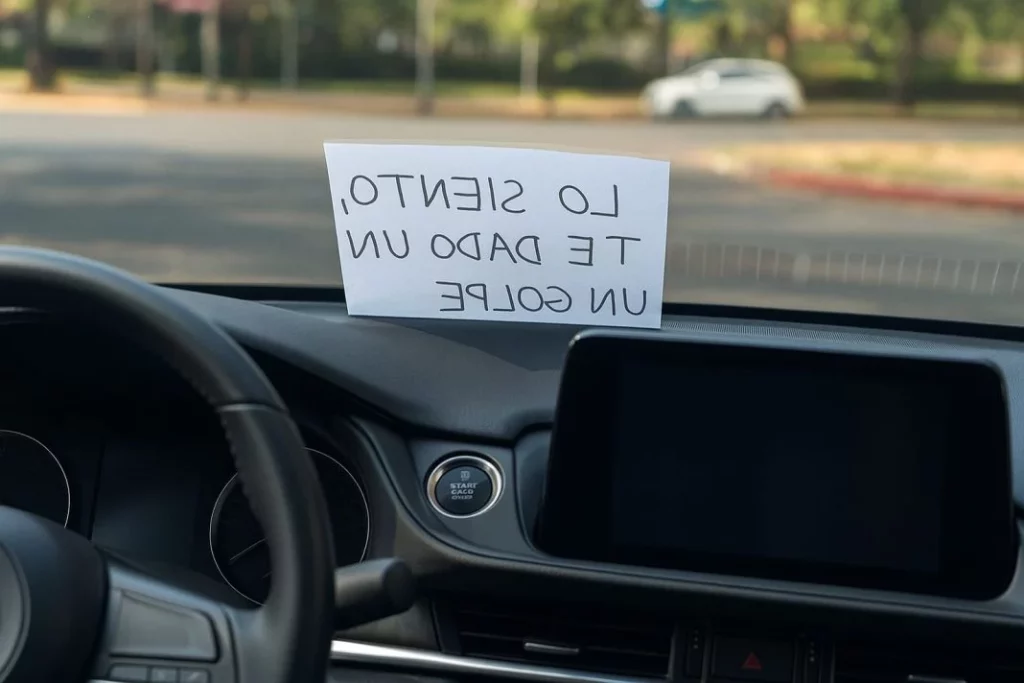 LO SIENTO,
TE DADO UN
UN GOLPE
START